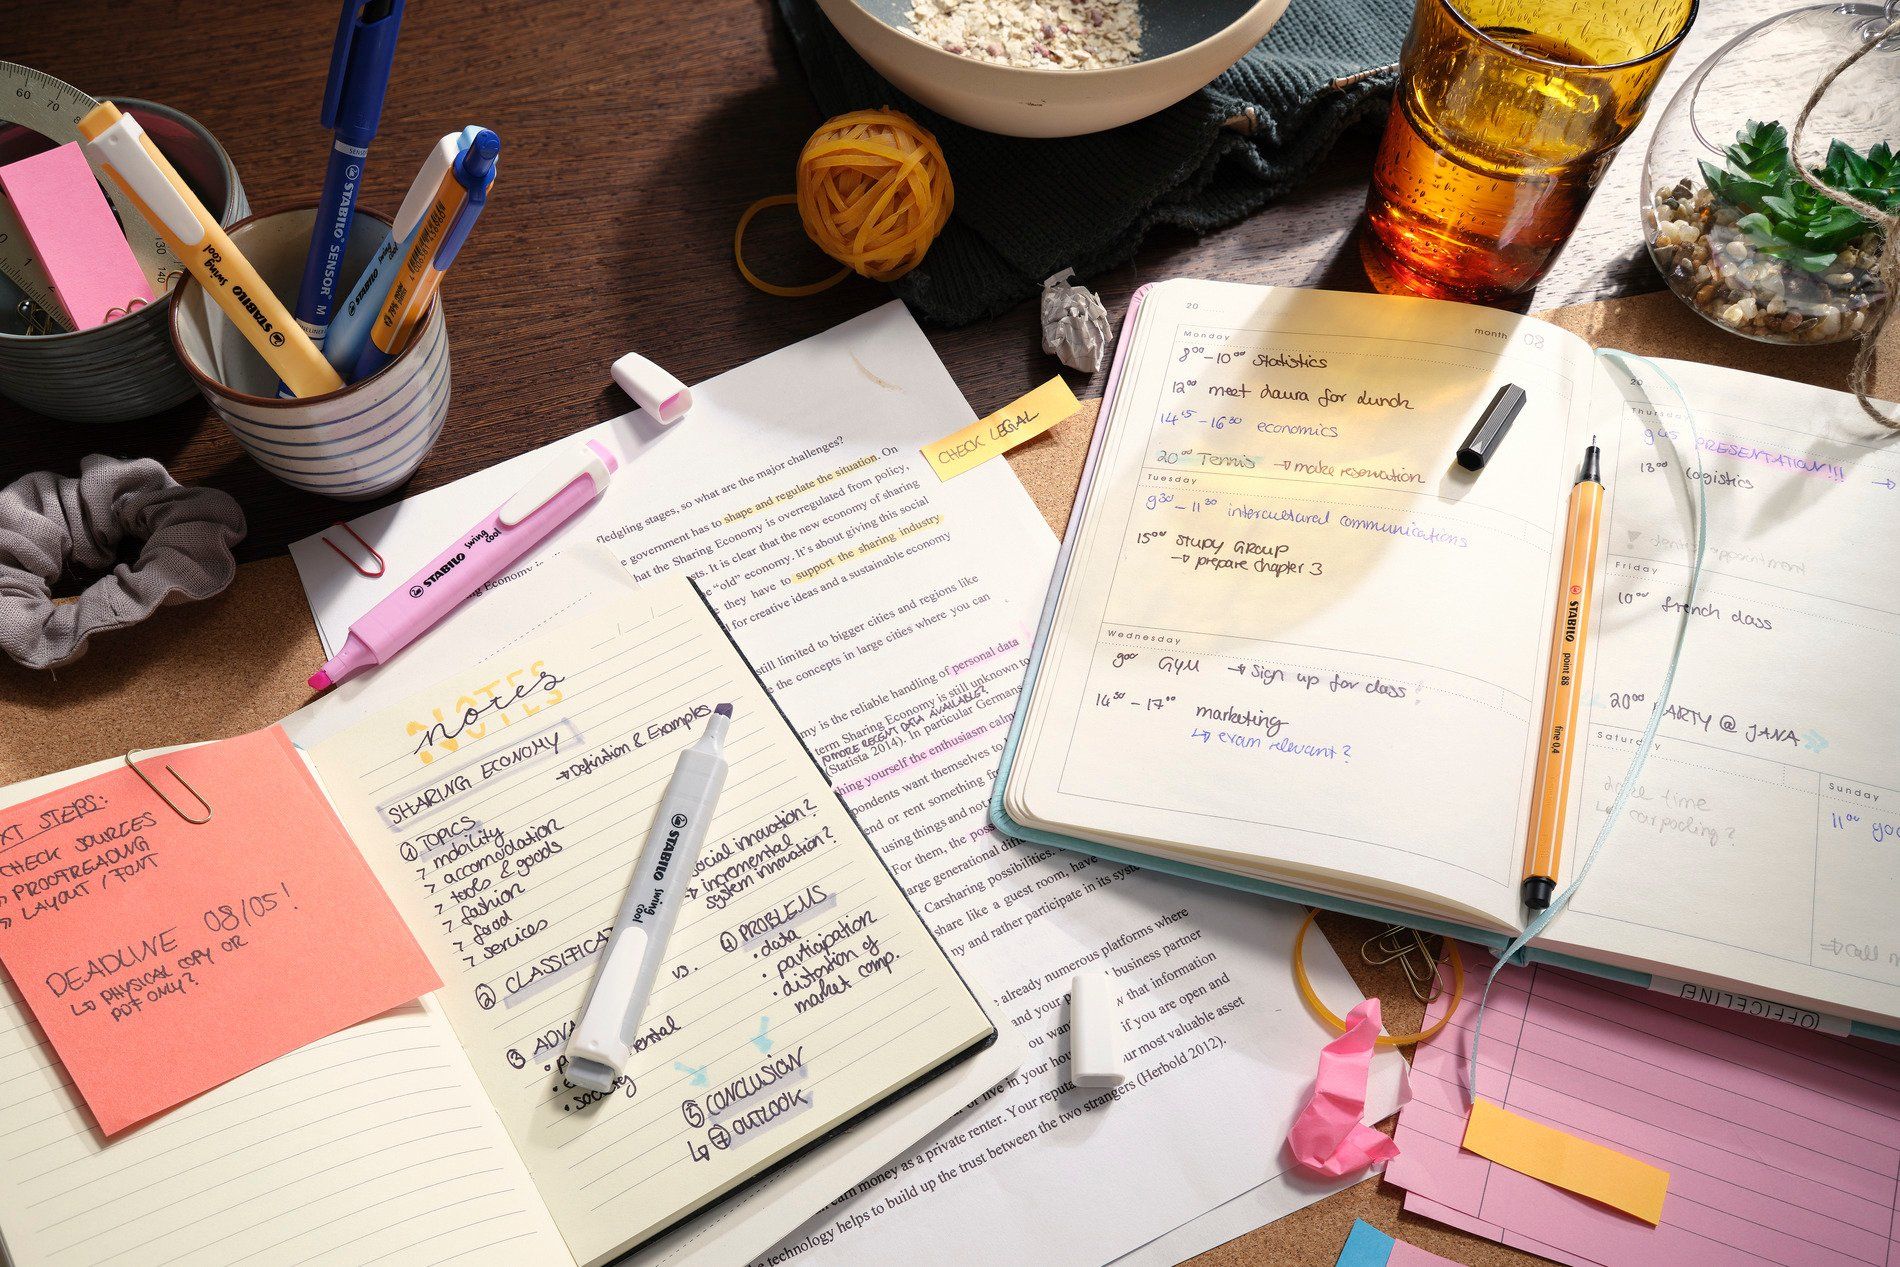 60
70
130
140
STABILO swing cool
STABILO SENSOR M
STABILO
swing cool
STABILO swing cool
fledgling stages, so what are the major challenges?
government has to shape and regulate the situation. On
hat the Sharing Economy is overregulated from policy,
sts. It is clear that the new economy of sharing
"old" economy. It's about giving this social
they have to support the sharing industry
for creative ideas and a sustainable economy
still limited to bigger cities and regions like
the concepts in large cities where you can
my is the reliable handling of personal data
term Sharing Economy is still unknown to
MORE RECENT DATA AVAILABLE?
(Statista 2014). In particular Germans
hing yourself the enthusiasm calm
pondents want themselves to
end or rent something
using things and not
For them, the
large generational
Carsharing possibilities.
share like a guest room, have
ny and rather participate in its
already numerous platforms where
and your business partner
ou w that information
live in your if you are open and
earn money as a private renter. Your ur most valuable asset
technology helps to build up the trust between the two strangers (Herbold 2012).
CHECK LEGAL
XT STEPS:
CHECK SOURCES
PROOFREADING
LAYOUT / FONT
DEADLINE 08/05!
↳ PHYSICAL COPY OR
PDF ONLY?
NOTES
notes
SHARING ECONOMY
→ Definition & Examples
① TOPICS
> mobility
> accomodation
> tools & goods
> fashion
> food
> services
② CLASSIFICAT
social innovation?
→ incremental
system innovation?
vs.
③ ADVA
mental
society
④ PROBLEMS
• data
• participation
• distortion of
market comp.
⑤ CONCLUSION
↳ ⑦ OUTLOOK
STABILO swing cool
20
month 08
Monday
8⁰⁰-10⁰⁰ Statistics
12⁰⁰ meet Laura for lunch
14¹⁵-16³⁰ economics
20⁰⁰ Tennis → make reservation
Tuesday
9³⁰-11³⁰ intercultured communications
15⁰⁰ STUDY GROUP
→ prepare chapter 3
Wednesday
9⁰⁰ GYM → Sign up for class
14³⁰-17⁰⁰ marketing
↳ exam relevant?
STABILO point 88 fine 0,4
20
Thursday
9⁴⁵ PRESENTATION!!!
18⁰⁰ logistics
Friday
10⁰⁰ french class
20⁰⁰ PARTY @ JANA
Saturday
time
↳ carpooling?
Sunday
11⁰⁰
@OFFICELINE